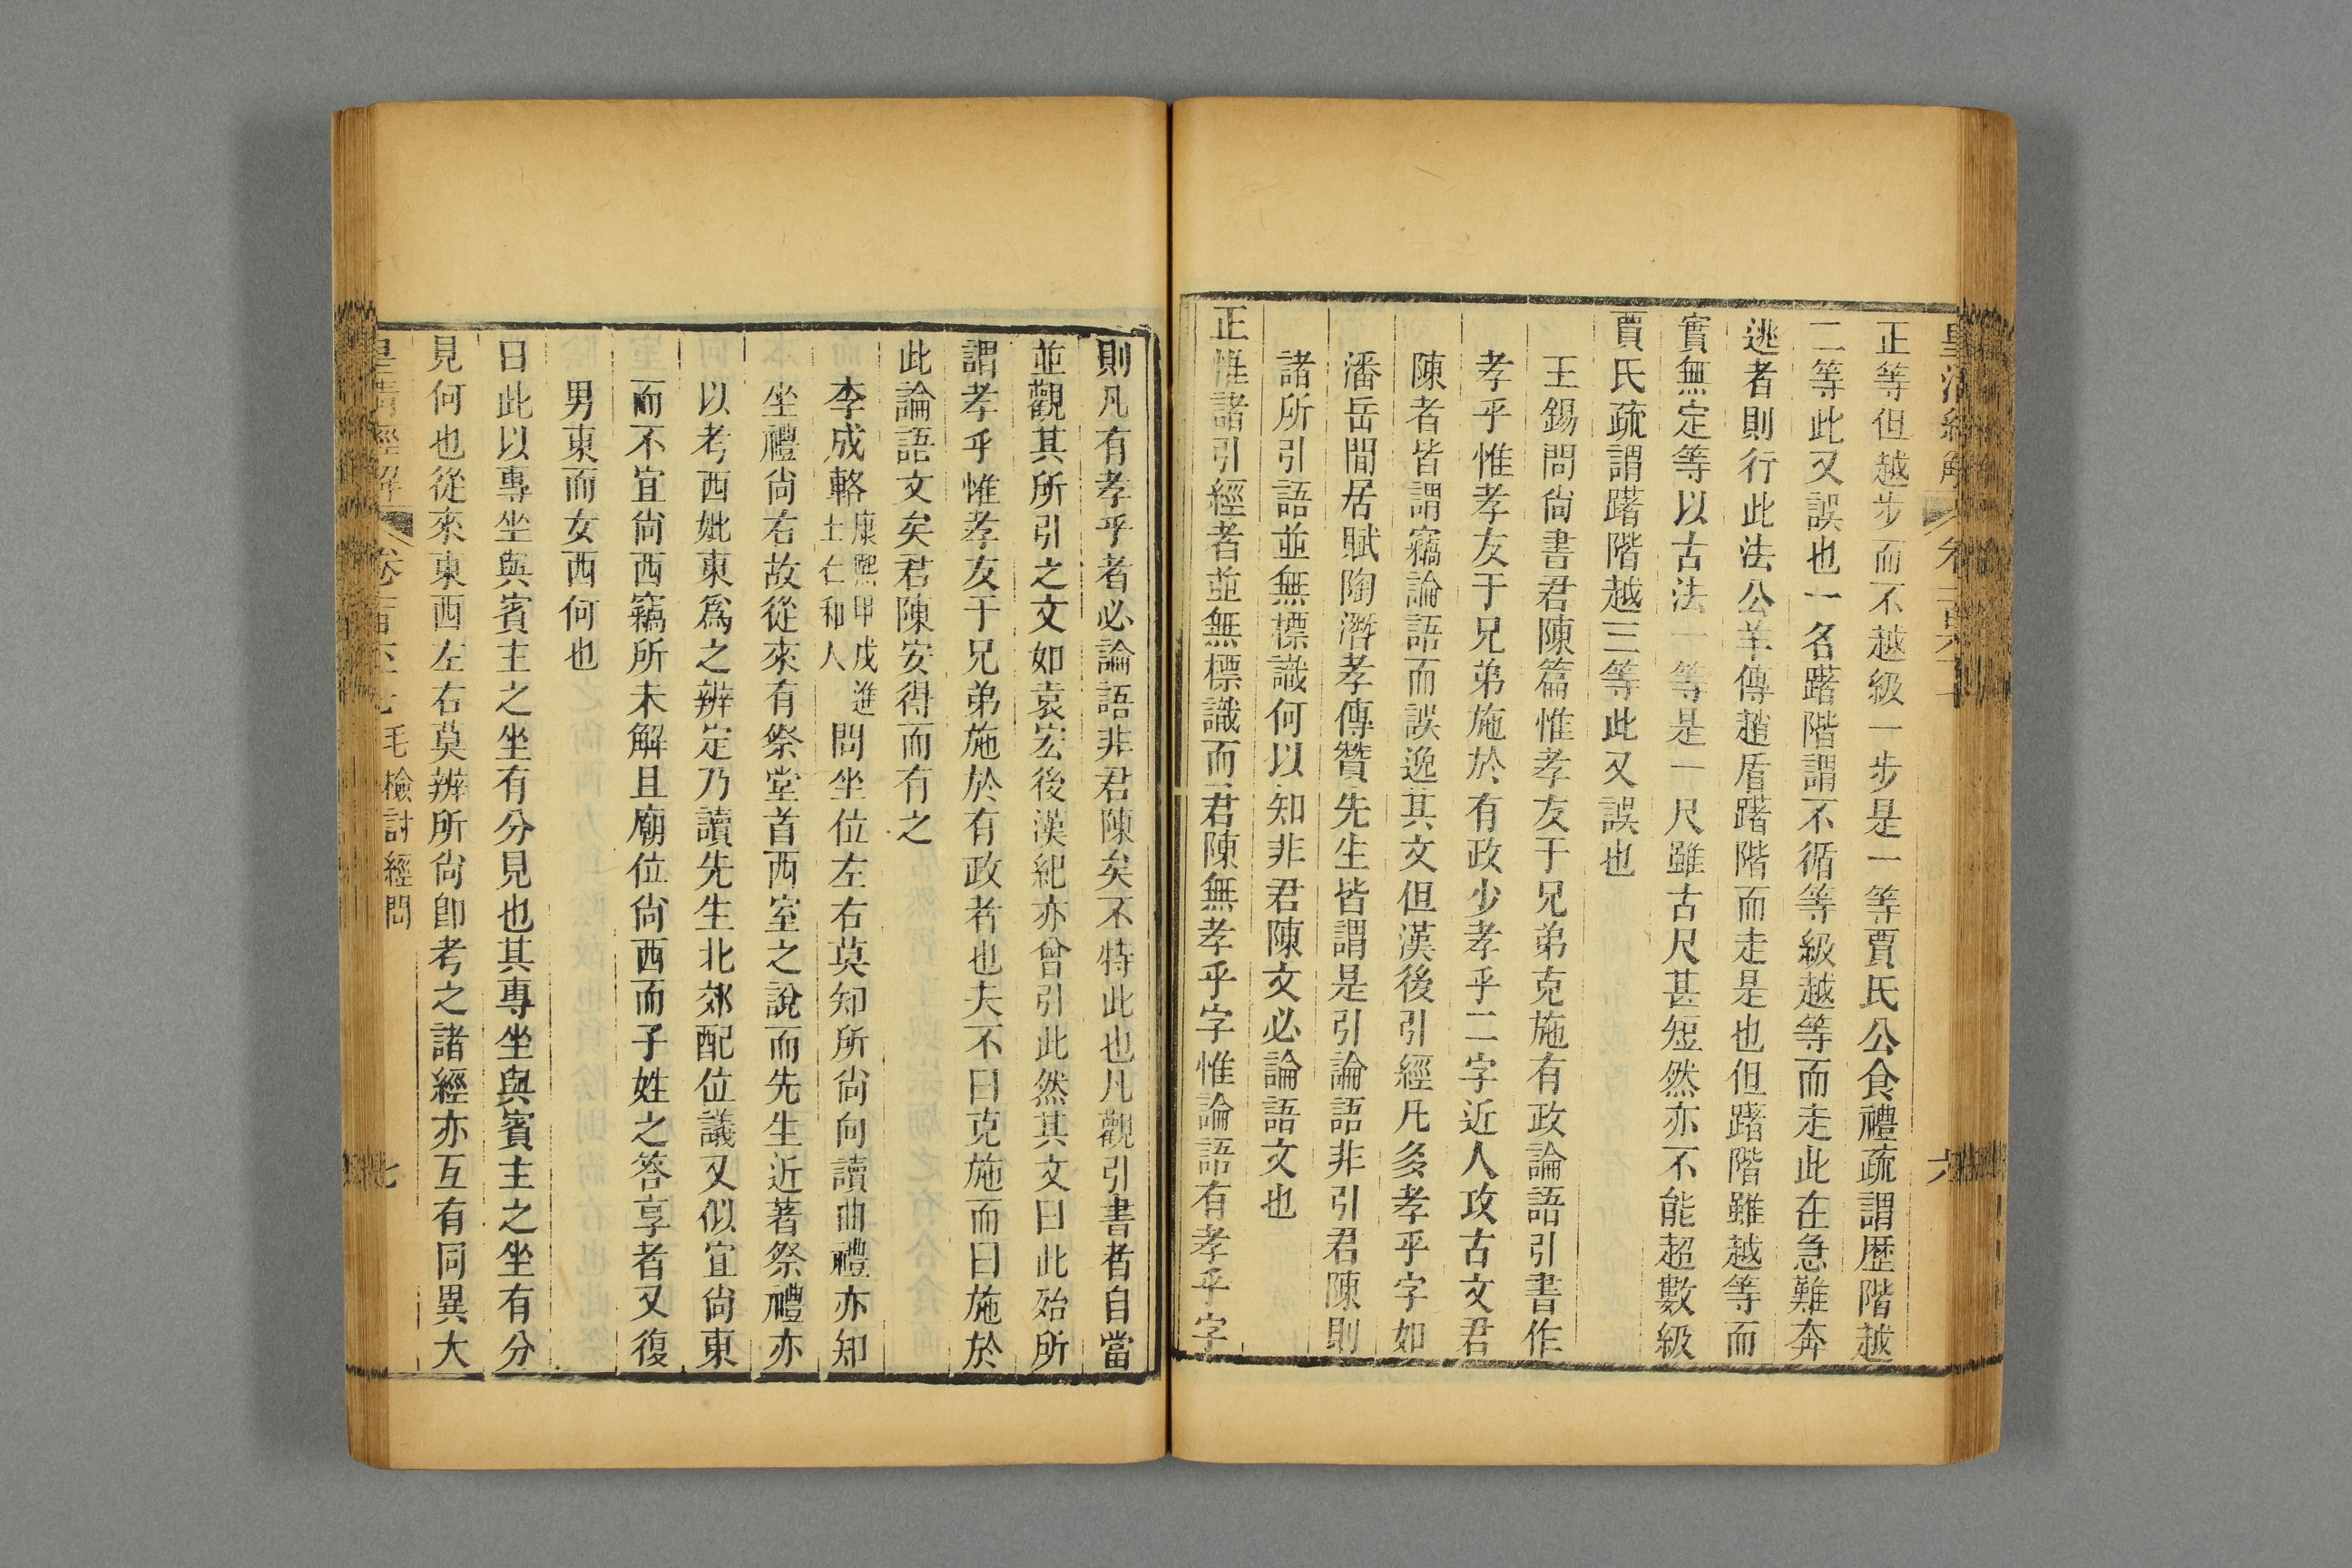 皇清經解
卷一百六十
六
正等但越步而不越級一步是一等賈氏公食禮疏謂歷階越
二等此又誤也一名躇階謂不循等級越等而走此在急難奔
逃者則行此法公羊傳趙盾躇階而走是也但躇階雖越等而
實無定等以古法一等是一尺雖古尺甚短然亦不能超數級
賈氏疏謂躇階越三等此又誤也
王錫問尙書君陳篇惟孝友于兄弟克施有政論語引書作
孝乎惟孝友于兄弟施於有政少孝乎二字近人攻古文君
陳者皆謂竊論語而誤逸其文但漢後引經凡多孝乎字如
潘岳閒居賦陶潛孝傳贊先生皆謂是引論語非引君陳則
諸所引語並無標識何以知非君陳文必論語文也
正惟諸引經者並無標識而君陳無孝乎字惟論語有孝乎字
則凡有孝乎者必論語非君陳矣不特此也凡觀引書者自當
並觀其所引之文如袁宏後漢紀亦曾引此然其文曰此殆所
謂孝乎惟孝友于兄弟施於有政者也夫不曰克施而曰施於
此論語文矣君陳安得而有之
李成輅康熙甲戌進士仁和人問坐位左右莫知所尙向讀曲禮亦知
坐禮尙右故從來有祭堂首西室之說而先生近著祭禮亦
以考西妣東爲之辨定乃讀先生北郊配位議又似宜尙東
而不宜尙西竊所未解且廟位尙西而子姓之答享者又復
男東而女西何也
曰此以專坐與賓主之坐有分見也其專坐與賓主之坐有分
見何也從來東西左右莫辨所尙卽考之諸經亦互有同異大
皇清經解
卷一百六十七
毛檢討經問
七